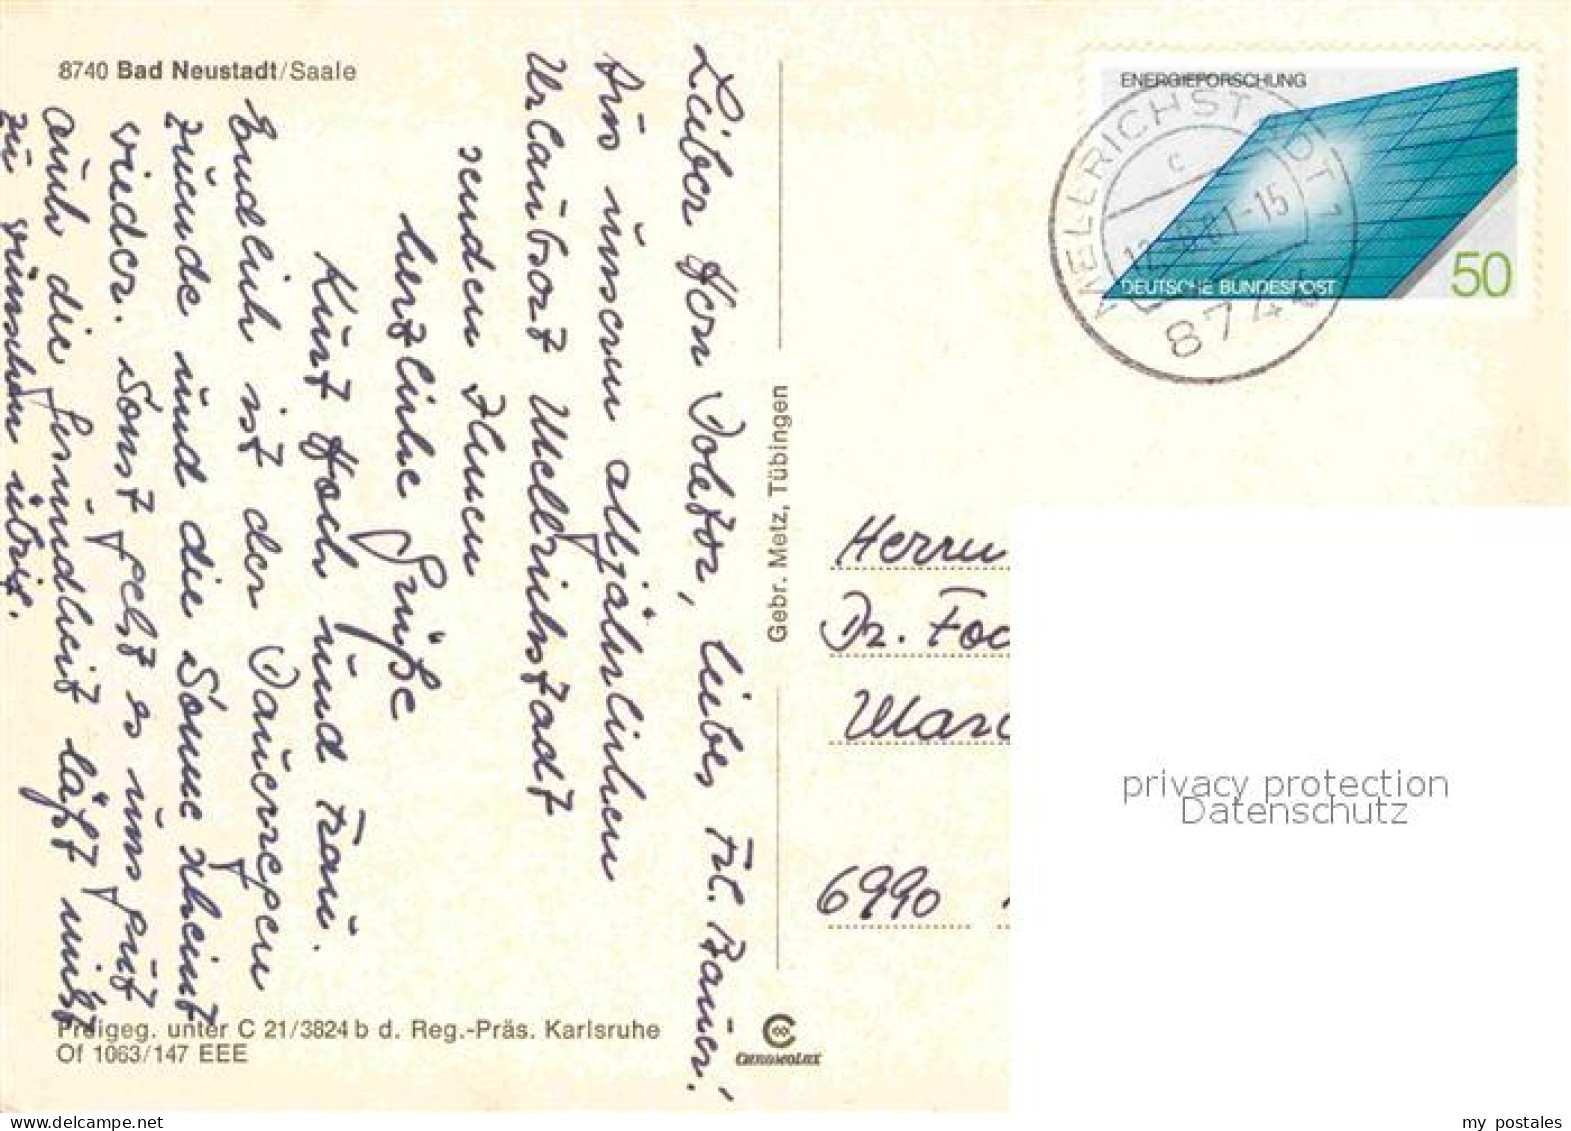 8740 Bad Neustadt/Saale
Lieber Herr Doktor, liebes Frl. Bauer!
Aus unserem alljährlichen
Urlaubsort Mellrichstadt
senden Ihnen
herzliche Grüße
Kurt Hoch und Frau.
Endlich ist der Dauerregen
zuende und die Sonne scheint
wieder. Sonst geht es uns gut
auch die Gesundheit läßt nichts
zu wünschen übrig.
Freigeg. unter C 21/3824 b d. Reg.-Präs. Karlsruhe
Of 1063/147 EEE
Gebr. Metz, Tübingen
CHROMOLUX
ENERGIEFORSCHUNG
DEUTSCHE BUNDESPOST
50
MELLRICHSTADT 1
c
81-15
8744
Herrn
Dr. Foc
Mar
6990
privacy protection
Datenschutz
www.delcampe.net
my_postales